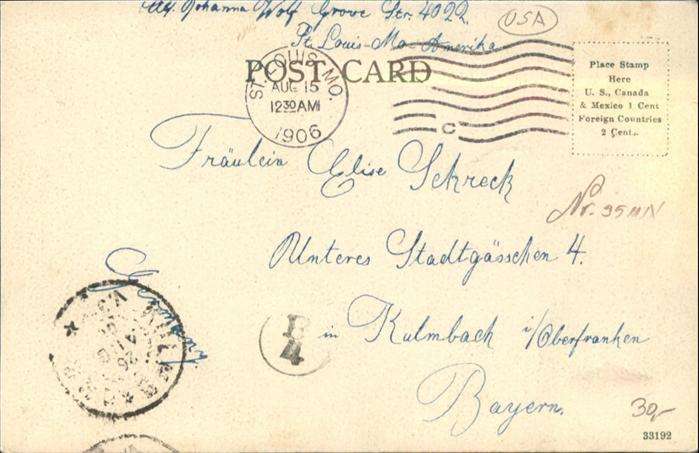 Johanna Wolf Grove Str. 4022
USA
St. Louis-Mo- Amerika
POST CARD
ST. LOUIS, MO.
AUG 15
12 30 AM
1906
C
Place Stamp
Here
U. S., Canada
& Mexico 1 Cent
Foreign Countries
2 Cent..
Fräulein Elise Schreck
Unteres Stadtgässchen 4.
Germany
B
4
in Kulmbach i/Oberfranken
Bayern.
30,-
33192